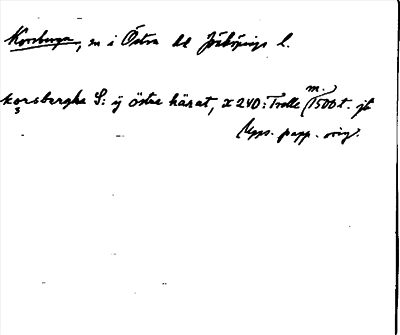 Korsberga, sn i Östra hd Jönköpings l.
korsberghe S: ij östre härat, x 240: Trolle m. 1500 t. jb
Upps. papp. orig.